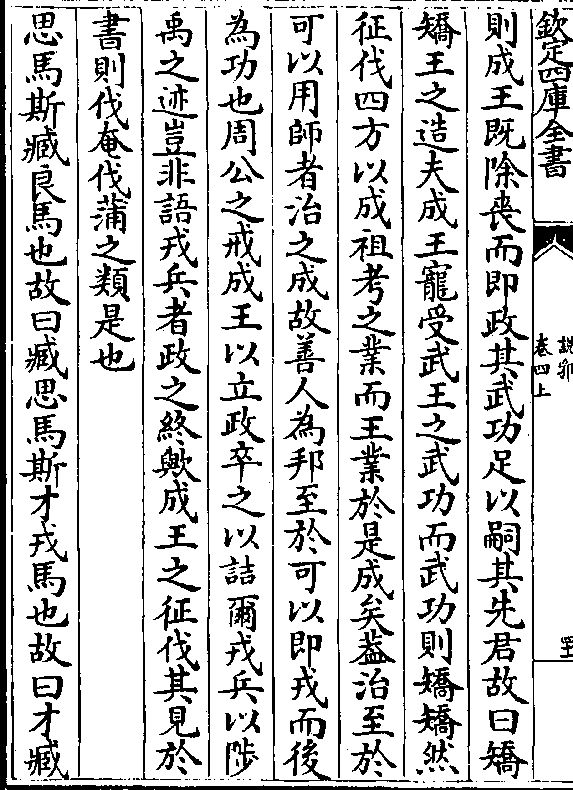 欽定四庫全書
卷四上
則成王既除喪而即政其武功足以嗣其先君故曰矯
矯王之造夫成王寵受武王之武功而武功則矯矯然
征伐四方以成祖考之業而王業於是成矣葢治至於
可以用師者治之成故善人為邦至於可以即戎而後
為功也周公之戒成王以立政卒之以詰爾戎兵以陟
禹之迹豈非語戎兵者政之終歟成王之征伐其見於
書則伐奄伐蒲之類是也
思馬斯臧良馬也故曰臧思馬斯才戎馬也故曰才臧